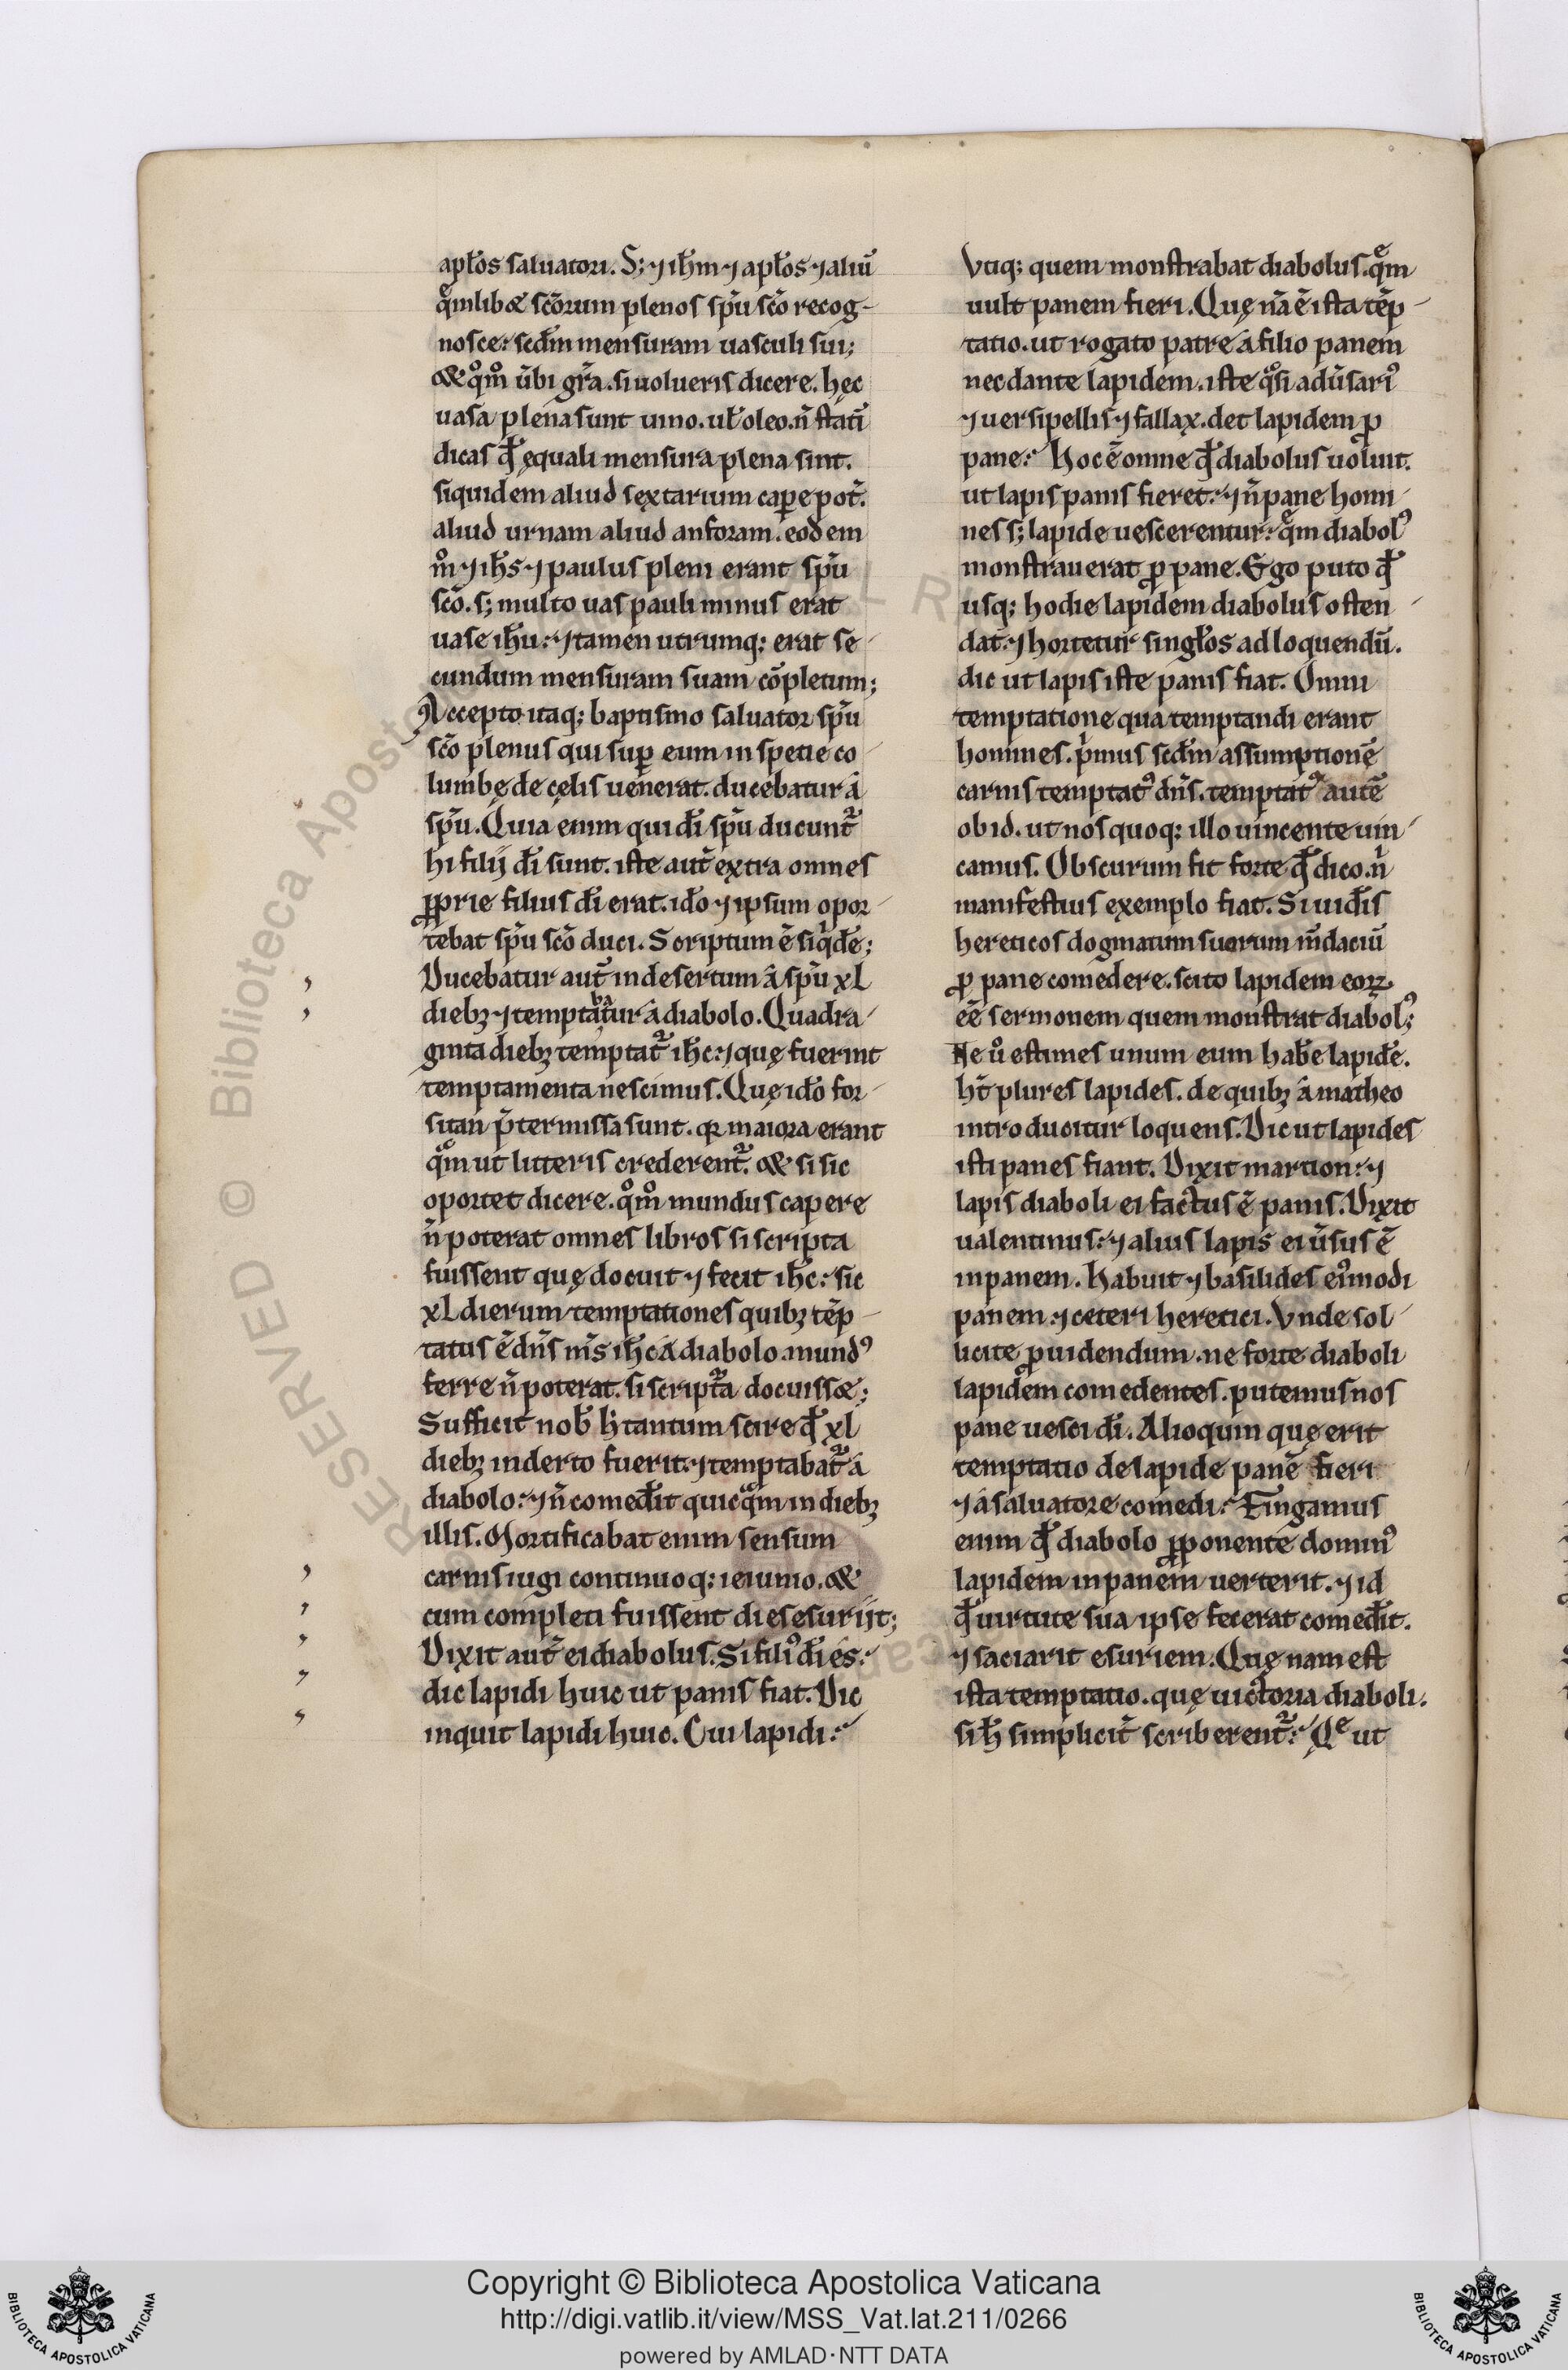 apłos saluatori. S; ⁊ ihm̄ ⁊ apłos ⁊ aliū
quēmlib& scōrum plenos sp̄u scō recog-
nosce: scdm̄ mensuram uasculi sui;
& qͦmͦ ūbi gr̄a. si uolueris dicere. hęc
uasa plena sunt uino. uł oleo. n̄ statī
dicas qđ ęquali mensura plena sint.
siquidem aliud sextarium caꝑe pot̄.
aliud urnam aliud anforam. eodem
mͦ ⁊ ihs̄ ⁊ paulus pleni erant sp̄u
scō. s; multo uas pauli minus erat
uase ihū: ⁊ tamen utrumq; erat se-
cundum mensuram suam cōpletum;
Accepto itaq; baptismo saluator sp̄u
scō plenus qui suꝑ eum in spetie co-
lumbę de cęlis uenerat. ducebatur á
sp̄u. Quia enim qui dī sp̄u ducunt᷑
hi filij dī sunt. iste aut̄ extra omnes
ꝓprie filius dī erat. ido ⁊ ipsum opor-
tebat sp̄u scō duci. Scriptum ē siqͥdē;
Ducebatur aut̄ in desertum á sp̄u xl
dieb; ⁊ temptabatur á diabolo. Quadra-
ginta dieb; temptat᷑ ihc̄: ⁊ quę fuerint
temptamenta nescimus. Quę ido for-
sitan p̄termissa sunt. qꝛ maiora erant
qͣm ut litteris crederent᷑. & si sic
oportet dicere. qͦmͦ mundus capere
n̄ poterat omnes libros si scripta
fuissent quę docuit ⁊ fecit ihc̄: sic
xl dierum temptationes quib; tēp-
tatus ē dn̄s nr̄s ihc̄ á diabolo. mundꝰ
ferre n̄ poterat. si scriptͣa docuiss&;
Sufficit nob̄ h̄ tantum scire qđ xl
dieb; in derto fuerit: ⁊ temptabat᷑ á
diabolo: ⁊ n̄ comedit quicqͣm in dieb;
illis. Mortificabat enim sensum
carnis iugi continuoq; ieiunio. &
cum completi fuissent dies esurijt;
Dixit aut̄ ei diabolus. Si filiꝰ dī es:
dic lapidi huic ut panis fiat. Dic
inquit lapidi huic. Cui lapidi:
Vtiq; quem monstrabat diabolus. qͤm
uult panem fieri. Quę nā ē ista tēp-
tatio. ut rogato patre á filio panem
nec dante lapidem. iste qͣsi adūsariꝰ
⁊ uersipellis ⁊ fallax. det lapidem ꝓ
pane: Hoc ē omne qđ diabolus uoluit.
ut lapis panis fieret: ⁊ n̄ pane homi-
nes s; lapide uescerentur: qͤm diabolꝰ
monstrauerat ꝓ pane. Ego puto qđ
usq; hodie lapidem diabolus osten-
dat: ⁊ hortetur singłos ad loquendū.
dic ut lapis iste panis fiat. Omni
temptatione qua temptandi erant
homines. pͥmus scdm̄ assumptionē
carnis temptatꝰ dn̄s. temptatꝰ autē
ob id. ut nos quoq; illo uincente uin-
camus. Obscurum fit forte qđ dico. nͥ
manifestius exemplo fiat. Si uidīs
hereticos dogmatum suorum m̄daciū
ꝓ pane comedere. scito lapidem eoꝝ
eē sermonem quem monstrat diabolꝰ;
Ne uͦ estimes unum eum habe lapidē.
ht̄ plures lapides. de quib; á matheo
introducitur loquens. Dic ut lapides
isti panes fiant. Dixit martion: ⁊
lapis diaboli ei factus ē panis. Dixit
ualentinus: ⁊ alius lapis ei ūsus ē
in panem. Habuit ⁊ basilides eiꝰmodi
panem. ⁊ ceteri heretici. Vnde sol-
licite ꝓuidendum. ne forte diaboli
lapidem comedentes. putemus nos
pane uesci dī. Alioquin quę erit
temptatio de lapide panē fieri
⁊ á saluatore comedi: Fingamus
enim qđ diabolo ꝓponente dominꝰ
lapidem in panem uerterit. ⁊ id
qđ uirtute sua ipse fecerat comedīt.
⁊ saciarit esuriem. Quę nam est
ista temptatio. quę uictoria diaboli.
si h̄ simplicit̄ scriberent᷑: Qͤ ut
Copyright © Biblioteca Apostolica Vaticana
http://digi.vatlib.it/view/MSS_Vat.lat.211/0266
powered by AMLAD·NTT DATA